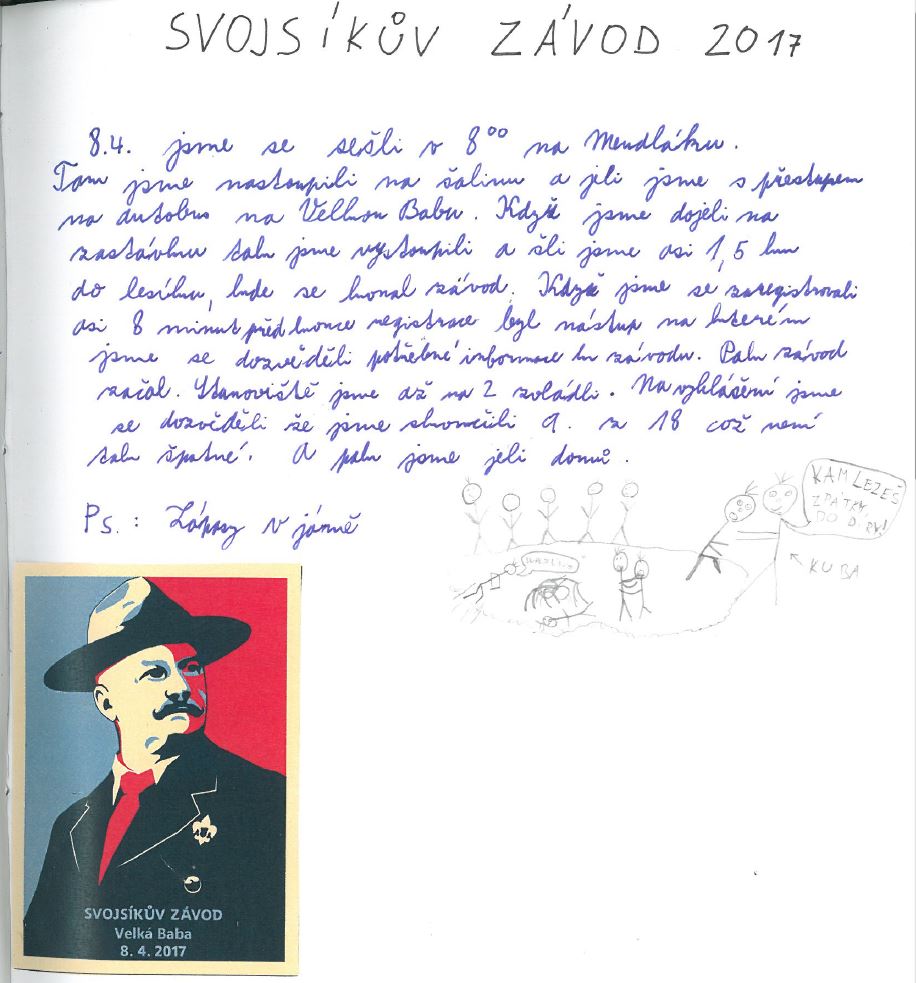 SVOJSÍKŮV ZÁVOD 2017
8.4. jsme se sešli v 8⁰⁰ na Mendláku.
Tam jsme nastoupili na šalinu a jeli jsme s přestupem
na autobus na Velkou Babu. Když jsme dojeli na
zastávku tak jsme vystoupili a šli jsme asi 1,5 km
do lesíku, kde se konal závod. Když jsme se zaregistrovali
asi 8 minut před konce registrace byl nástup na kterém
jsme se dozvěděli potřebné informace k závodu. Pak závod
začal. Stanoviště jsme až na 2 zvládli. Na vyhlášení jsme
se dozvěděli že jsme skončili 9. z 18 což není
tak špatné. A pak jsme jeli domů.
Ps.: Zápasy v jámě
KAM LEZEŠ
ZPÁTKY
DO D.RY!
KUBA
SVOJSÍKŮV ZÁVOD
Velká Baba
8. 4. 2017